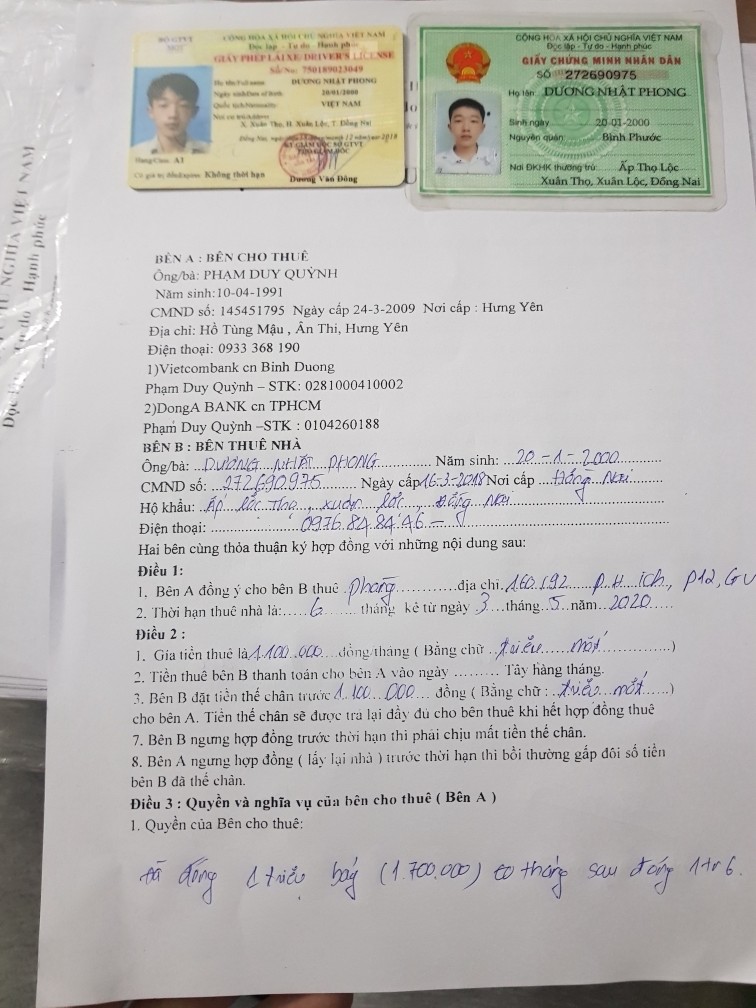 BỘ GTVT
CỘNG HÒA XÃ HỘI CHỦ NGHĨA VIỆT NAM
Độc lập - Tự do - Hạnh phúc
GIẤY PHÉP LÁI XE/DRIVER'S LICENSE
Số/No: 750189023049
Họ tên/Full name: DƯƠNG NHẬT PHONG
Ngày sinh/Date of Birth: 20/01/2000
Quốc tịch/Nationality: VIỆT NAM
Nơi cư trú/Address:
X. Xuân Thọ, H. Xuân Lộc, T. Đồng Nai
Đồng Nai, ngày/date tháng/month 12 năm/year 2018
GIÁM ĐỐC SỞ GTVT
Hạng/Class: A1
Có giá trị đến/Expires: Không thời hạn
Dương Văn Đông
CỘNG HÒA XÃ HỘI CHỦ NGHĨA VIỆT NAM
Độc lập - Tự do - Hạnh phúc
GIẤY CHỨNG MINH NHÂN DÂN
SỐ 272690975
Họ tên: DƯƠNG NHẬT PHONG
Sinh ngày 20-01-2000
Nguyên quán Bình Phước
Nơi ĐKHK thường trú: Ấp Thọ Lộc
Xuân Thọ, Xuân Lộc, Đồng Nai
NGHĨA VIỆT NAM
do - Hạnh phúc
BÊN A : BÊN CHO THUÊ
Ông/bà: PHẠM DUY QUỲNH
Năm sinh:10-04-1991
CMND số: 145451795 Ngày cấp 24-3-2009 Nơi cấp : Hưng Yên
Địa chỉ: Hồ Tùng Mậu , Ân Thi, Hưng Yên
Điện thoại: 0933 368 190
1)Vietcombank cn Binh Duong
Phạm Duy Quỳnh – STK: 0281000410002
2)DongA BANK cn TPHCM
Phạm Duy Quỳnh –STK : 0104260188
BÊN B : BÊN THUÊ NHÀ
Ông/bà: ...DƯƠNG...NHẬT...PHONG............ Năm sinh: ...20 - 1 - 2000............
CMND số: .....272690975.......... Ngày cấp 16-3-2018 Nơi cấp ....Đồng...Nai........
Hộ khẩu: ...Ấp lộc Thọ, xuân lộc, Đồng Nai..............
Điện thoại: ....................0976.84.84.46.............
Hai bên cùng thỏa thuận ký hợp đồng với những nội dung sau:
Điều 1:
1. Bên A đồng ý cho bên B thuê .phòng...........địa chỉ.160.192.....P.H ích, P12, GV
2. Thời hạn thuê nhà là:.....6...... tháng kể từ ngày .3...tháng..5..năm..2020.....
Điều 2 :
1. Gía tiền thuê là 1.100.000...đồng/tháng ( Bằng chữ ..triệu.....một............)
2. Tiền thuê bên B thanh toán cho bên A vào ngày ......... Tây hàng tháng.
3. Bên B đặt tiền thế chân trước .1.100...000... đồng ( Bằng chữ : ..triệu..một......)
cho bên A. Tiền thế chân sẽ được trả lại đầy đủ cho bên thuê khi hết hợp đồng thuê
7. Bên B ngưng hợp đồng trước thời hạn thì phải chịu mất tiền thế chân.
8. Bên A ngưng hợp đồng ( lấy lại nhà ) trước thời hạn thì bồi thường gấp đôi số tiền
bên B đã thế chân.
Điều 3 : Quyền và nghĩa vụ của bên cho thuê ( Bên A )
1. Quyền của Bên cho thuê:
đã đóng 1 triệu bảy (1.700.000) tháng sau đóng 1tr6.